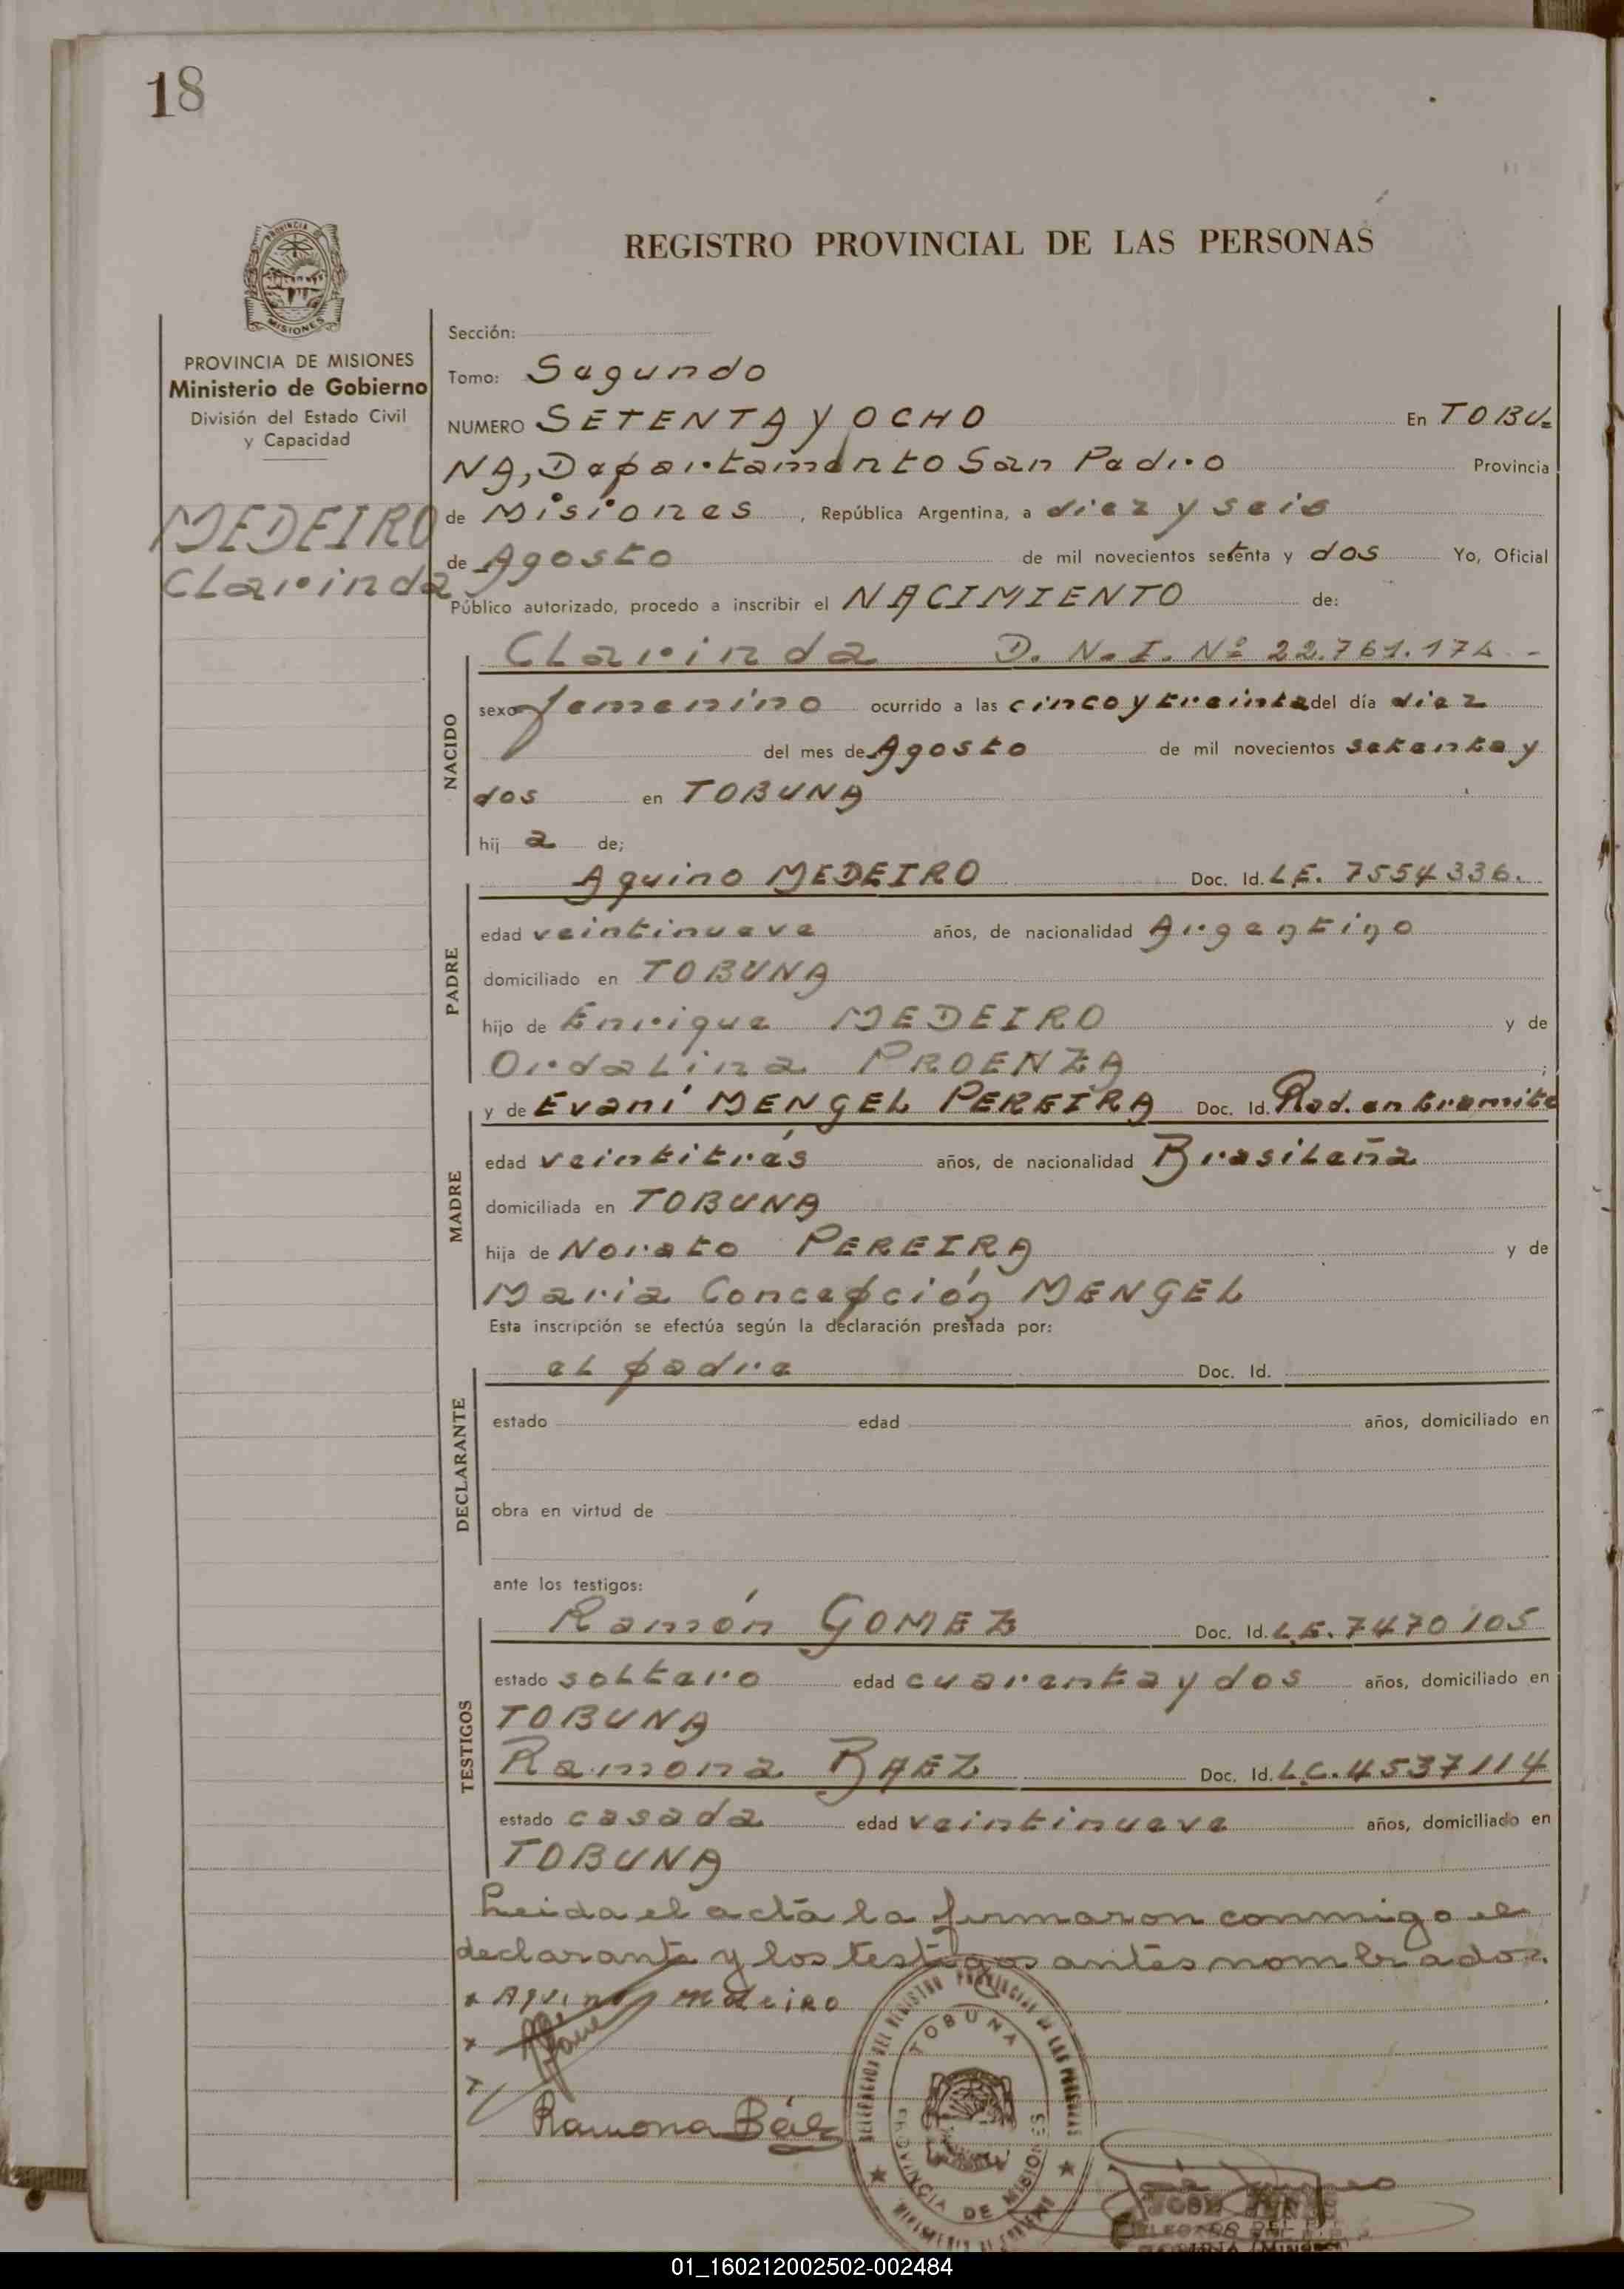 18
REGISTRO PROVINCIAL DE LAS PERSONAS
PROVINCIA
MISIONES
PROVINCIA DE MISIONES
Ministerio de Gobierno
División del Estado Civil
y Capacidad
MEDEIRO
Clarinda
Sección:
Tomo: Segundo
NUMERO SETENTA Y OCHO En TOBU=
NA, Departamento San Pedro Provincia
de Misiones, República Argentina, a diez y seis
de Agosto de mil novecientos setenta y dos Yo, Oficial
Público autorizado, procedo a inscribir el NACIMIENTO de:
NACIDO
Clarinda D. N. I. Nº 22.761.174 -
sexo femenino ocurrido a las cinco y treinta del día diez
del mes de Agosto de mil novecientos setenta y
dos en TOBUNA
hij a de;
PADRE
Aquino MEDEIRO Doc. Id. L.E. 7554336.
edad veintinueve años, de nacionalidad Argentino
domiciliado en TOBUNA
hijo de Enrique MEDEIRO y de
Ordalina PROENZA ;
MADRE
y de Evaní MENGEL PEREIRA Doc. Id. Rad. en tramite
edad veintitrés años, de nacionalidad Brasileña
domiciliada en TOBUNA
hija de Norato PEREIRA y de
Maria Concepción MENGEL
Esta inscripción se efectúa según la declaración prestada por:
DECLARANTE
el padre Doc. Id.
estado edad años, domiciliado en
obra en virtud de
ante los testigos:
TESTIGOS
Ramón GOMEZ Doc. Id. L.E. 7470105
estado soltero edad cuarenta y dos años, domiciliado en
TOBUNA
Ramona BAEZ Doc. Id. L.C. 4537114
estado casada edad veintinueve años, domiciliado en
TOBUNA
Leida el acta la firmaron conmigo el
declarante y los testigos antes nombrados.
x Aquino Medeiro
x
x
Ramona Báez
DELEGACION DEL REGISTRO PROVINCIAL DE LAS PERSONAS
TOBUNA
PROVINCIA DE MISIONES
MINISTERIO DE GOBIERNO
JOSE
01_160212002502-002484